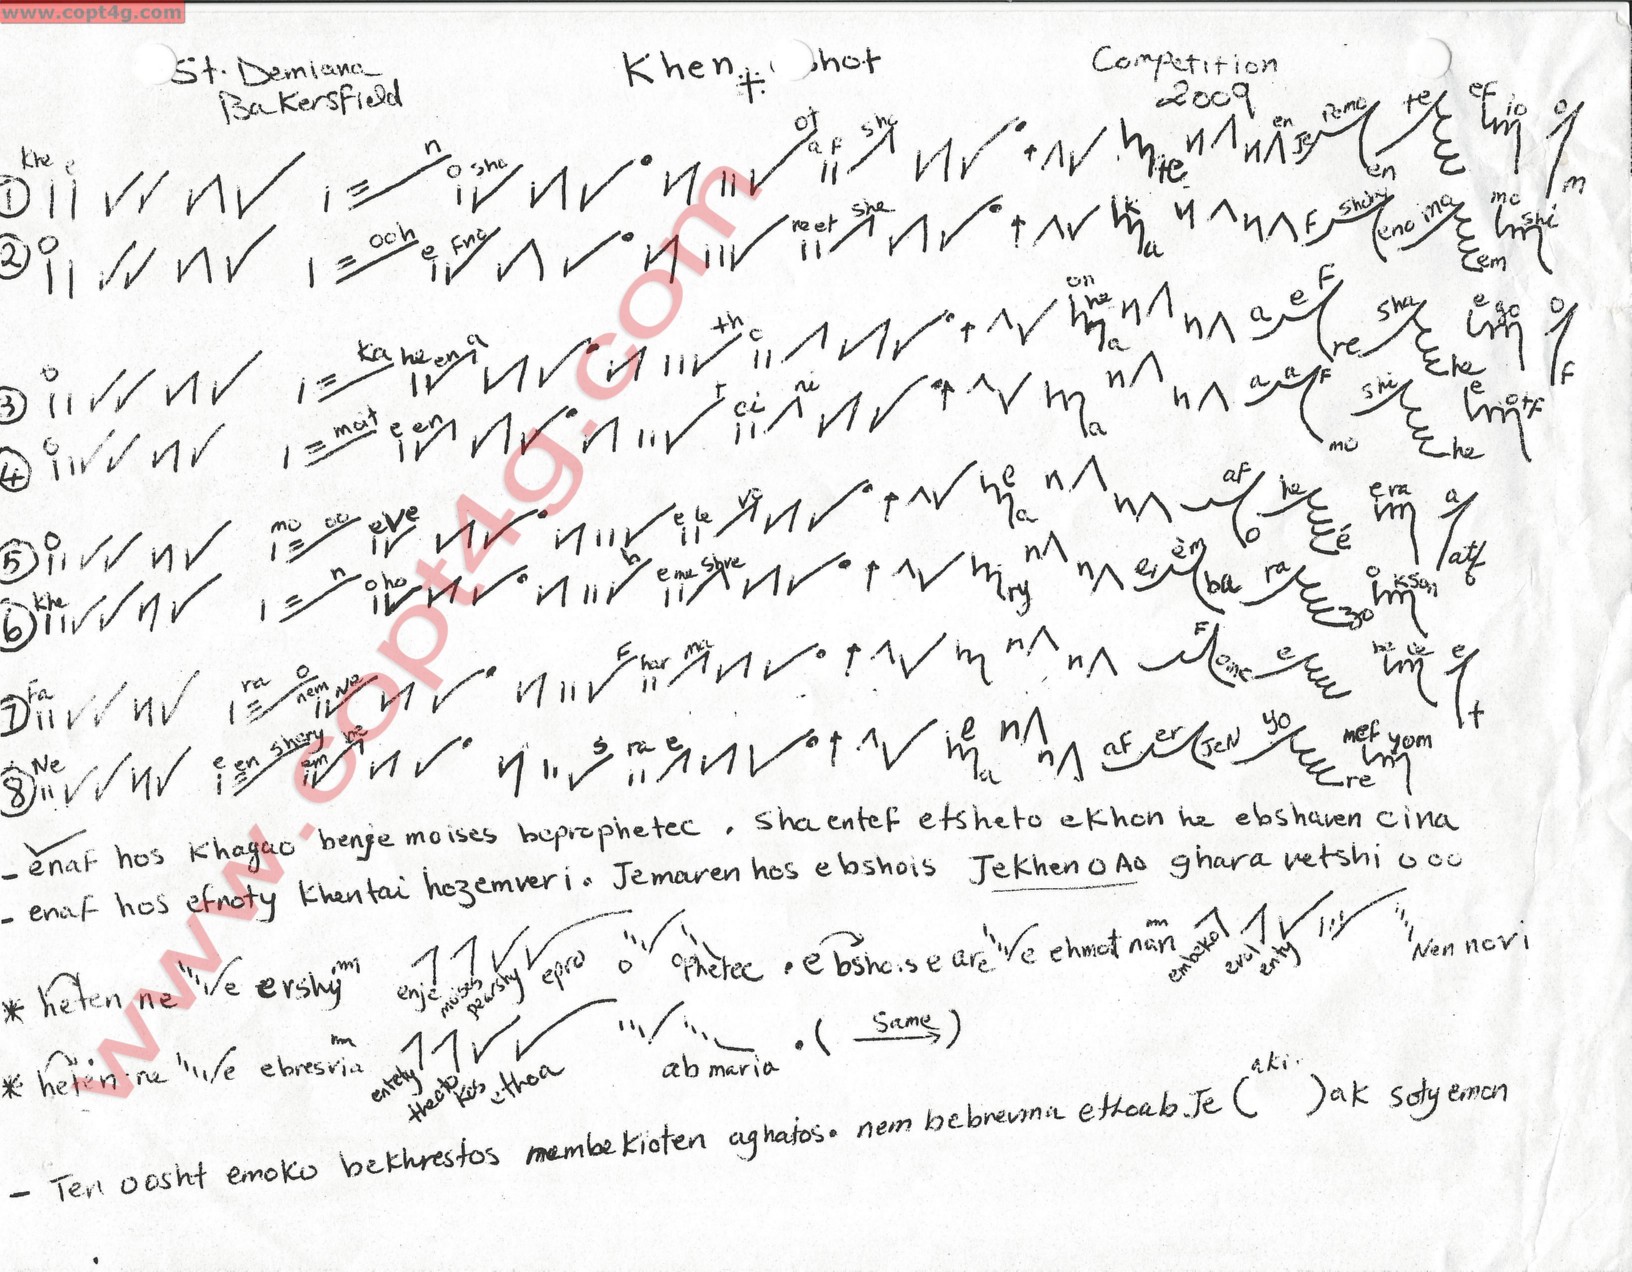 www.copt4g.com
St. Demiana Khen hot Competition
Bakersfield 2009
① khe e n o sha ot af sha te en je remo en te ef io o m
② o ooh e fno reet she k a f shary eno ma em mo shi
③ o ka he en a th o on he a a e f re sha he e go o f
④ o moit e en t ci ni a a a f mo shi he e otf
⑤ o mo oo eve e le ve e a af o he e era a atf
⑥ khe n oho h eme shve ry er em ba ra zo o kson
⑦ Fa ra o nem Ne F har ma F ome e he ce e t
⑧ Ne e en shery em he s ra e e a af er jen yo re mef yom
- enaf hos khagao benje moises beprophetec . sha entef etsheto ekhon he ebshaven cina
- enaf hos efnoty khentai hozemveri . Jemaren hos ebshois Jekhen o Ao ghara vetshi o oo
* heten ne e ershy enje moises pearshy epro o o phetec . e bshois e are e ehmot nan embeko evol enty Nen novi
* heten ne e ebresvia entety theoto kos ethoa ab maria . ( same )
- Ten oosht emoko bekhrestos nembekioten aghatos . nem bebrevma ethoab Je ( aki. ) ak soty emon
www.copt4g.com